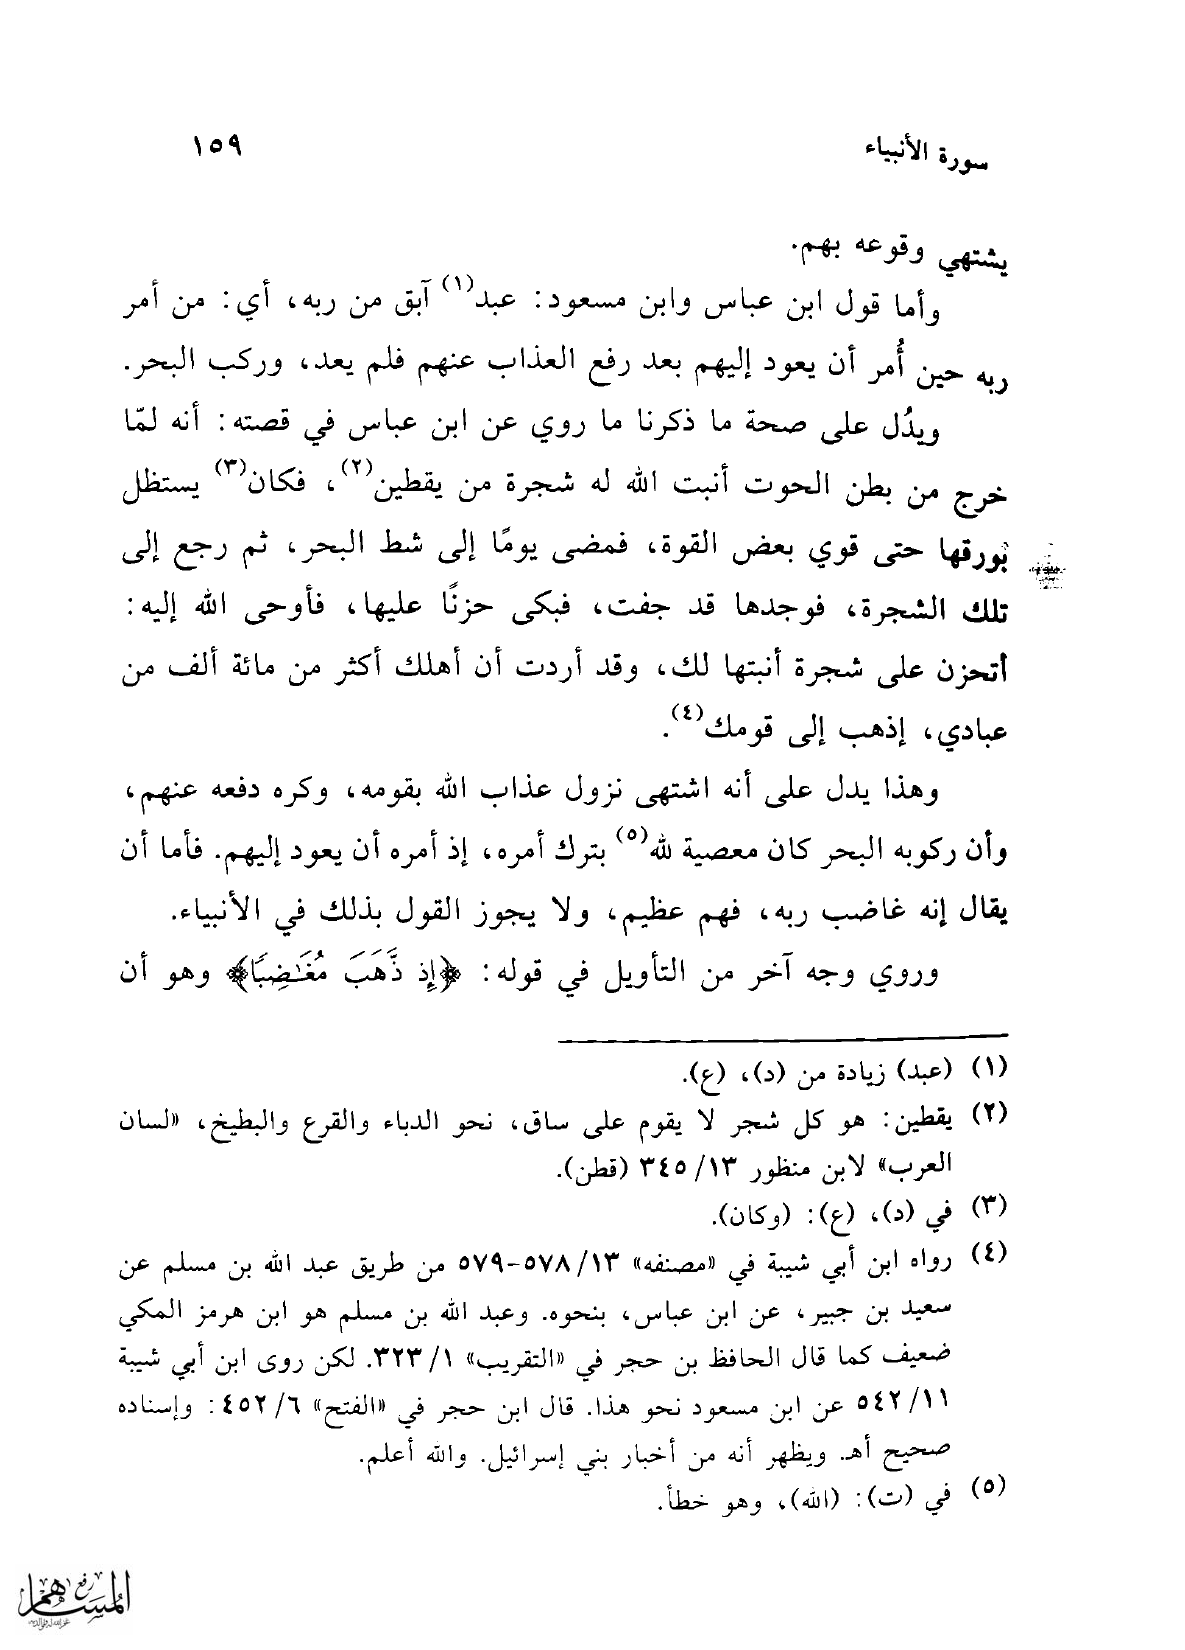 سورة الأنبياء ١٥٩
يشتهي وقوعه بهم.
وأما قول ابن عباس وابن مسعود: عبد(١) آبق من ربه، أي: من أمر
ربه حين أُمر أن يعود إليهم بعد رفع العذاب عنهم فلم يعد، وركب البحر.
ويدُل على صحة ما ذكرنا ما روي عن ابن عباس في قصته: أنه لمّا
خرج من بطن الحوت أنبت الله له شجرة من يقطين(٢)، فكان(٣) يستظل
بورقها حتى قوي بعض القوة، فمضى يومًا إلى شط البحر، ثم رجع إلى
تلك الشجرة، فوجدها قد جفت، فبكى حزنًا عليها، فأوحى الله إليه:
أتحزن على شجرة أنبتها لك، وقد أردت أن أهلك أكثر من مائة ألف من
عبادي، إذهب إلى قومك(٤).
وهذا يدل على أنه اشتهى نزول عذاب الله بقومه، وكره دفعه عنهم،
وأن ركوبه البحر كان معصية لله(٥) بترك أمره، إذ أمره أن يعود إليهم. فأما أن
يقال إنه غاضب ربه، فهم عظيم، ولا يجوز القول بذلك في الأنبياء.
وروي وجه آخر من التأويل في قوله: ﴿إِذ ذَّهَبَ مُغَـٰضِبًا﴾ وهو أن
(١) (عبد) زيادة من (د)، (ع).
(٢) يقطين: هو كل شجر لا يقوم على ساق، نحو الدباء والقرع والبطيخ، «لسان
العرب» لابن منظور ١٣/ ٣٤٥ (قطن).
(٣) في (د)، (ع): (وكان).
(٤) رواه ابن أبي شيبة في «مصنفه» ١٣/ ٥٧٨-٥٧٩ من طريق عبد الله بن مسلم عن
سعيد بن جبير، عن ابن عباس، بنحوه. وعبد الله بن مسلم هو ابن هرمز المكي
ضعيف كما قال الحافظ بن حجر في «التقريب» ١/ ٣٢٣. لكن روى ابن أبي شيبة
١١/ ٥٤٢ عن ابن مسعود نحو هذا. قال ابن حجر في «الفتح» ٦/ ٤٥٢: وإسناده
صحيح أهـ. ويظهر أنه من أخبار بني إسرائيل. والله أعلم.
(٥) في (ت): (الله)، وهو خطأ.